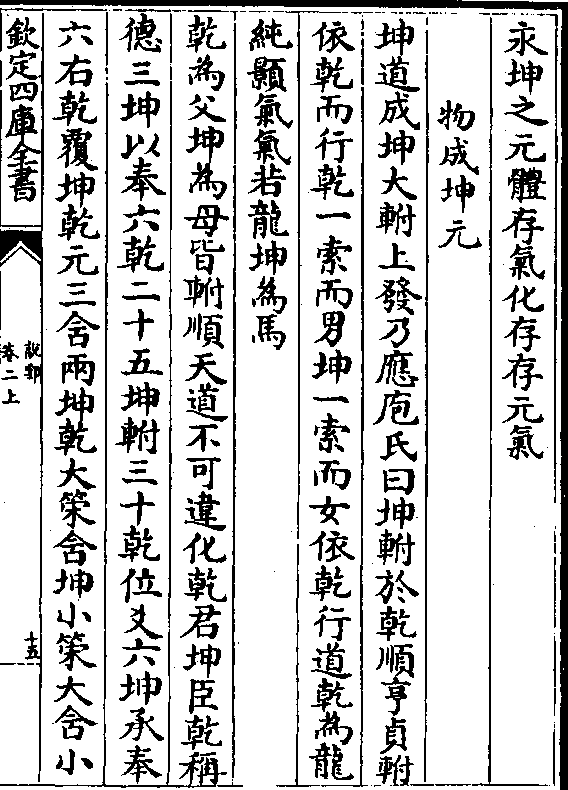 永坤之元體存氣化存存元氣
物成坤元
坤道成坤大輔上發乃應庖氏曰坤輔於乾順亨貞輔
依乾而行乾一索而男坤一索而女依乾行道乾為龍
純顥氣氣若龍坤為馬
乾為父坤為母皆輔順天道不可違化乾君坤臣乾稱
德三坤以奉六乾二十五坤輔三十乾位爻六坤承奉
六右乾覆坤乾元三含兩坤乾大策含坤小策大含小
欽定四庫全書
說郛
卷二上
十五